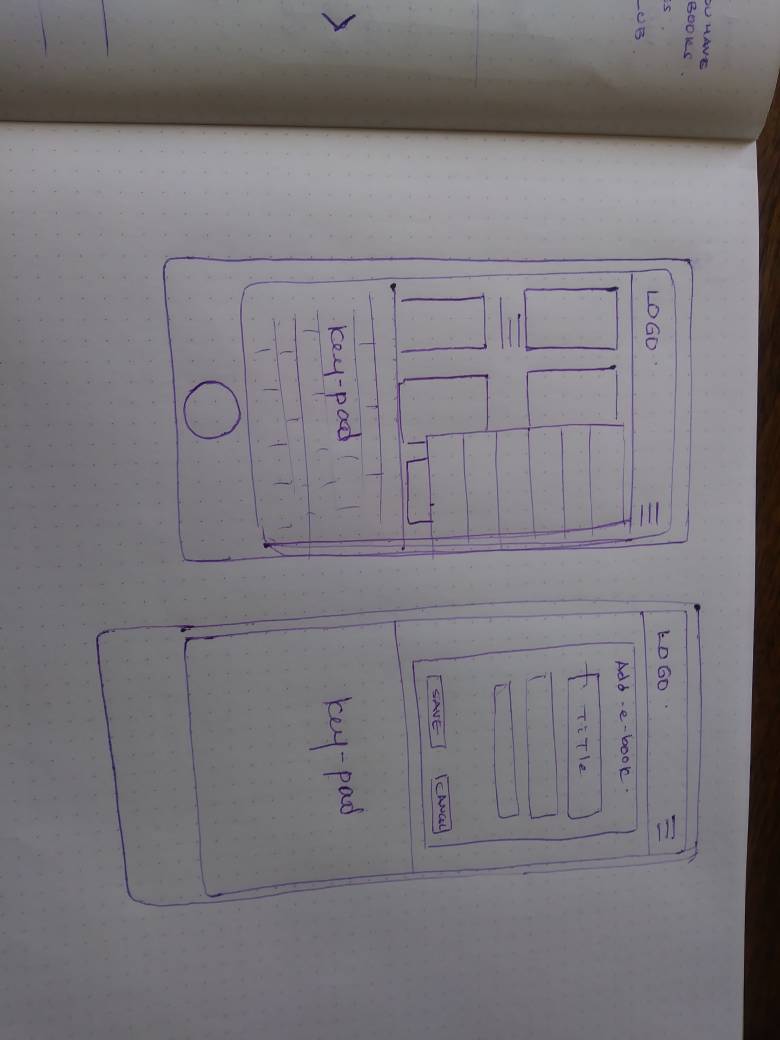 OU HAVE
BOOKS.
LOGO.
key-pad
LOGO.
Add-e-book.
TiTle
SAVE
CANCEL
key-pad